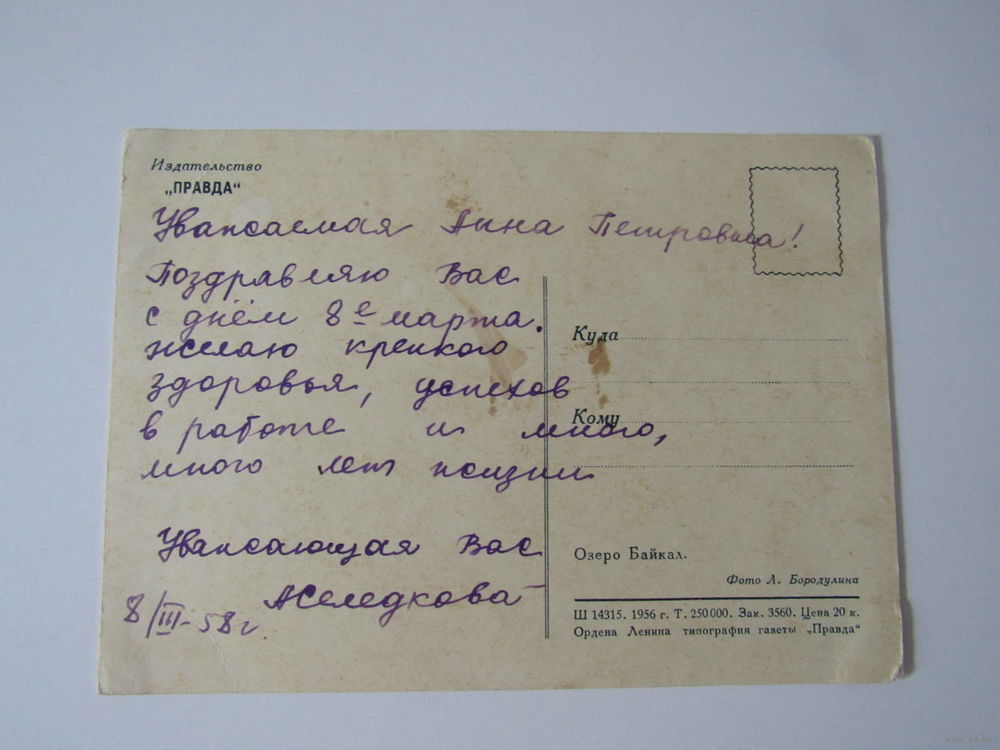 Издательство
„ПРАВДА“
Уважаемая Анна Петровна!
Поздравляю Вас
с днём 8е марта.
желаю крепкого
здоровья, успехов
в работе и много,
много лет жизни
Уважающая Вас
8/III-58г.
Куда
Кому
Озеро Байкал.
Фото Л. Бородулина
Ш 14315. 1956 г. Т. 250000. Зак. 3560. Цена 20 к.
Ордена Ленина типография газеты „Правда“